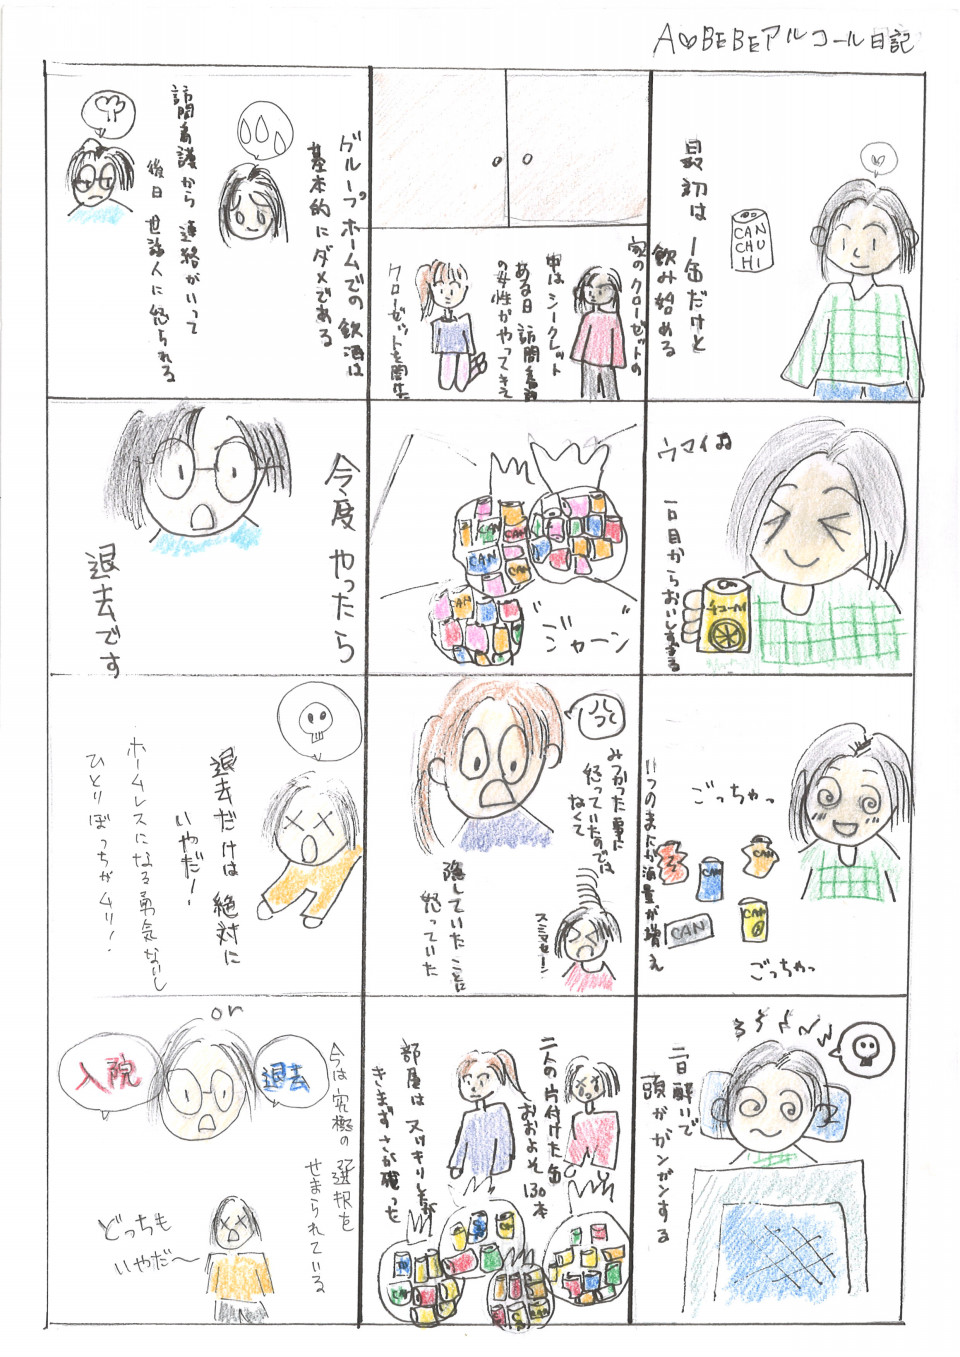 A♡BEBEアルコール日記
最初は1缶だけと
飲み始める
CAN
CHU
HI
ウマイね
一口目からおいしすぎる
チューハイ
ごっちゃっ
いつのまにか酒量が増え
CAN
CAN
CAN
CAN
ごっちゃっ
二日酔いで
頭がガンガンする
家のクローゼットの
中はシークレット
ある日訪問看護
の女性がやってきて
クローゼットを開けた
CAN
CAN
CAN
CAN
CAN
ジャーン
みつかった事に
怒っていたのでは
なくて
隠していたことに
怒っていた
スミマセーン
二人の片付けた缶
おおよそ130本
部屋はスッキリしたが
きまずさが残った
CAN
グループホームでの飲酒は
基本的にダメである
訪問看護から連絡がいって
後日世話人に怒られる
今度やったら
退去です
退去だけは絶対に
いやだー!
ホームレスになる勇気ないし
ひとりぼっちがムリ!
or
入院
退去
今は究極の選択を
せまられている
どっちも
いやだ〜